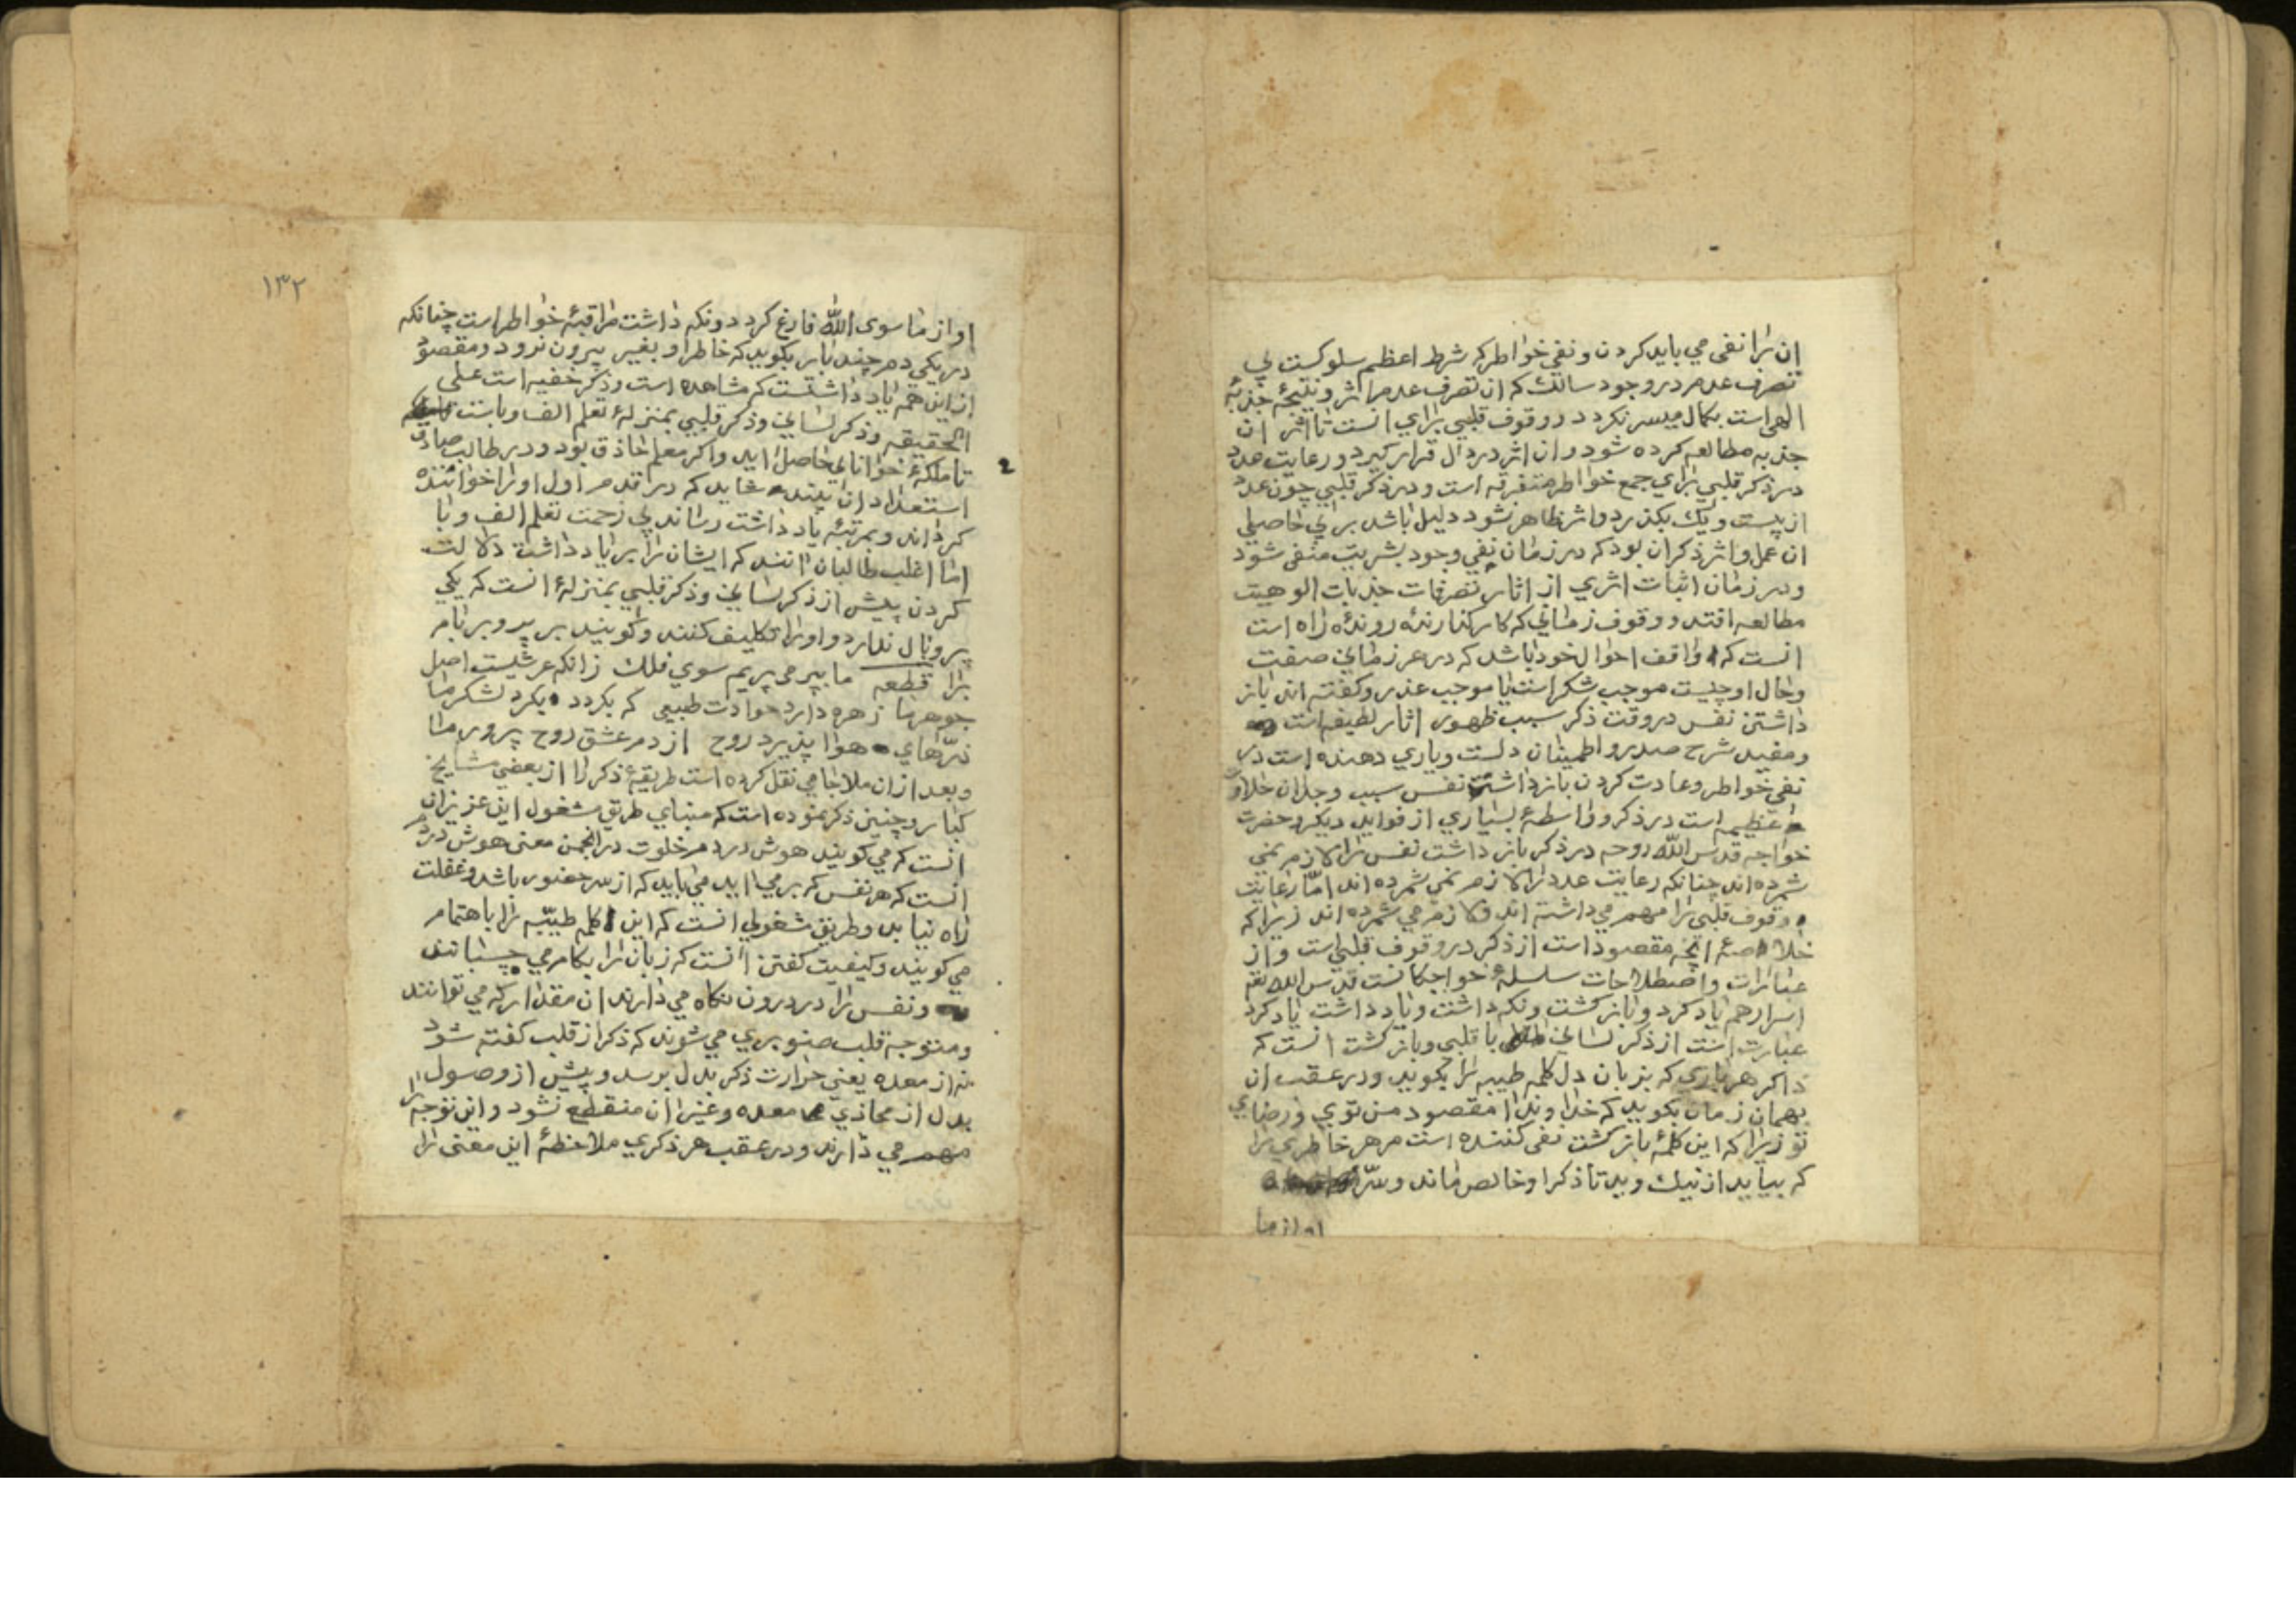 ان را نفی می باید کردن و نفی خواطر که شرط اعظم سلوکست بی
تصرف عدم در وجود سالک که ان تصرف عدم اثر و نتیجهٔ جذبهٔ
الهی است بکمال میسر نکردد و وقوف قلبی برای انست تا اثر ان
جذبه مطالعه کرده شود و ان اثر در دل قرار کیرد و رعایت عدد
در ذکر قلبی برای جمع خواطر متفرقه است و در ذکر قلبی چون عدد
از بیست و یک بکذرد و اثر ظاهر نشود دلیل باشد برای حاصلی
ان عمل و اثر ذکر ان بود که در زمان نفی وجود بشریت منفی شود
و در زمان اثبات اثری از اثار تصرفات جذبات الوهیت
مطالعه افتد و وقوف زمانی که کار کذارندهٔ روندهٔ راه است
انست که واقف احوال خود باشد که در هر زمانی صفت
و حال او چیست موجب شکر است یا موجب عذر و کفته اند باز
داشتن نفس در وقت ذکر سبب ظهور اثار لطیفه است
و مفید شرح صدر و اطمینان دلست و یاری دهنده است در
نفی خواطر و عادت کردن باز داشتن نفس سبب وجدان حلاوت
عظیمه است در ذکر و واسطهٔ بسیاری از فواید دیکر و حضرت
خواجه قدس الله روحه در ذکر باز داشت نفس را لازم نمی
شمرده اند چنانکه رعایت عدد را لازم نمی شمرده اند امّا رعایت
وقوف قلبی را مهم می داشته اند و لازم می شمرده اند زیرا که
خلاصهٔ انچه مقصود است از ذکر در وقوف قلبی است و از
عبارات و اصطلاحات سلسلهٔ خواجکانست قدس الله تع
اسرارهم یاد کرد و باز کشت و نکه داشت و یاد داشت یاد کرد
عبارت است از ذکر لسانی یا قلبی و باز کشت انست که
ذاکر هر باری که بزبان دل کلمه طیبه را بکوید و در عقب ان
بهمان زمان بکوید که خداوندا مقصود من توی و رضای
تو زیرا که این کلمهٔ باز کشت نفی کننده است مر هر خاطری را
که بیاید از نیک و بد تا ذکر او خالص ماند و سرّ
او از ما
١٣٢
او از ما سوی الله فارغ کردد و نکه داشت مراقبهٔ خواطر است چنانکه
در یکی دم چند بار بکوید که خاطر او بغیر بیرون نرود و مقصود
از این همه یاد داشتست که مشاهده است و ذکر خفیه است علی
الحقیقه و ذکر لسانی و ذکر قلبی بمنزلهٔ تعلم الف و با ست
تا ملکهٔ خوانائی حاصل اید و اکر معلم حاذق بود و در طالب صادق
استعداد ان بیند شاید که در قدم اول او را خواننده
کرداند و بمرتبهٔ یاد داشت رساند بی زحمت تعلم الف و با
امّا اغلب طالبان انند که ایشان را بر یاد داشت دلالت
کردن پیش از ذکر لسانی و ذکر قلبی بمنزلهٔ انست که یکی
پر و بال ندارد و او را تکلیف کنند و کویند بر پر و بر بام
برا قطعه ما بپر می پریم سوی فلک زانکه عرشیست اصل
جوهر ما زهره دارد حوادث طبیعی که بکردد بکرد لشکر ما
ذرّهای هوا پذیرد روح از دم عشق روح پرور ما
و بعد از ان ملا جامی نقل کرده است طریقهٔ ذکر را از بعضی مشایخ
کبار و چنین ذکر نموده است که مبنای طریق مشغول این عزیزان
انست که می کویند هوش در دم خلوت در انجمن معنی هوش در دم
انست که هر نفس که بر می اید می باید که از سر حضور باشد و غفلت
راه نیابد و طریق مشغولی انست که این کلمه طیّبه را باهتمام
می کویند و کیفیت کفتن انست که زبان را بکام می چسبانند
و نفس را در درون نکاه می دارند ان مقدار که می توانند
و متوجه قلب صنوبری می شوند که ذکر از قلب کفته شود
نه از معده یعنی حرارت ذکر بدل برسد و پیش از وصول
بدل از محاذی معده و غیر ان منقطع نشود و این توجه را
مهم می دارند و در عقب هر ذکری ملاحظهٔ این معنی را